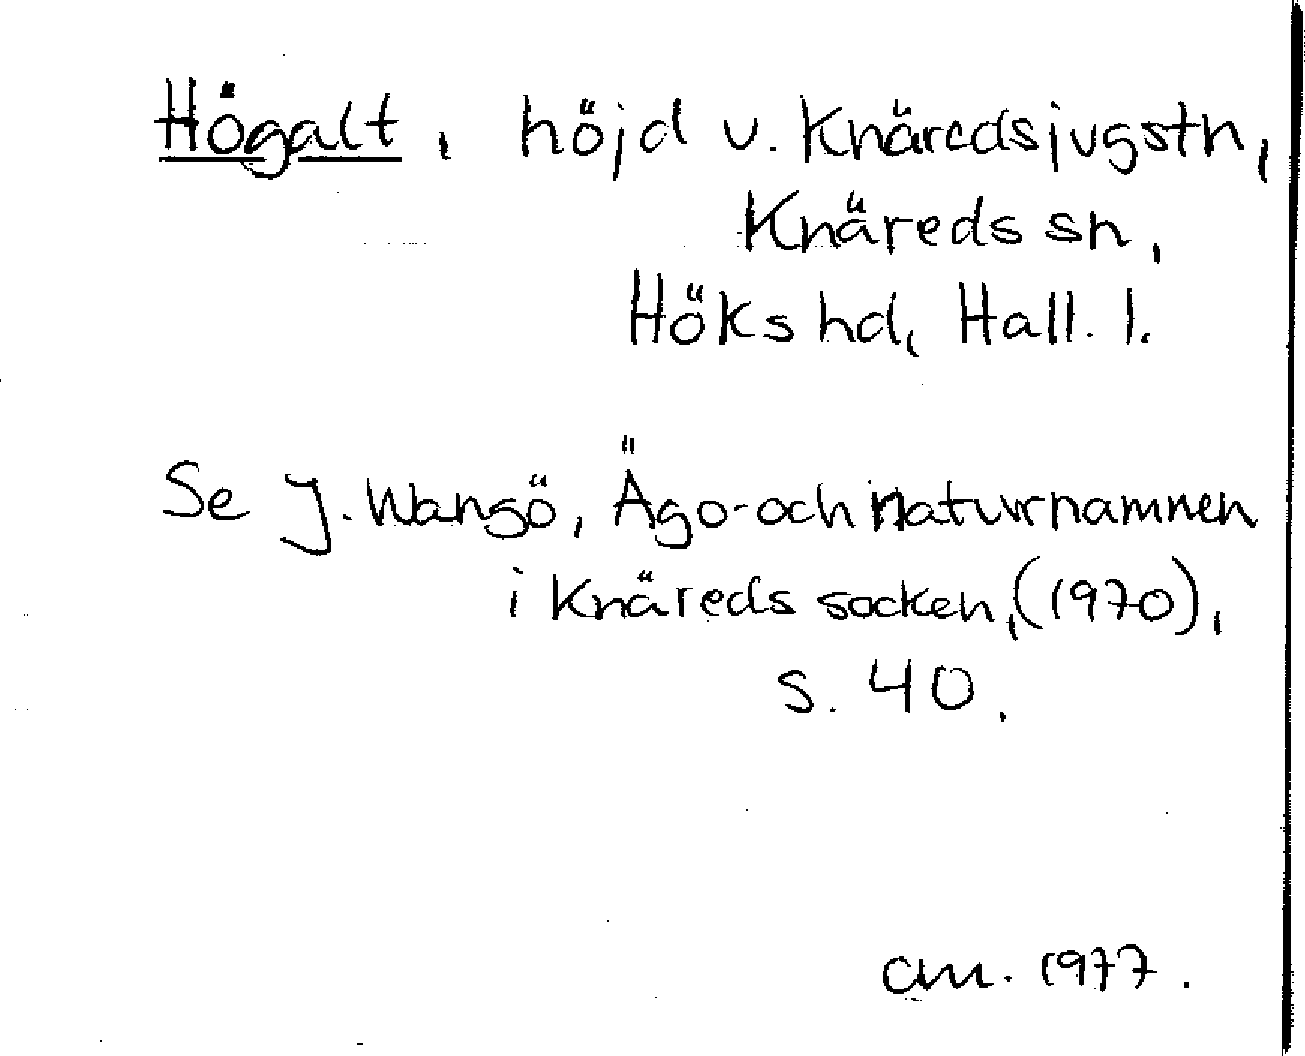 Högalt, höjd v. Knäredsjvgstn,
Knäreds sn,
Höks hd, Hall. l.
Se J. Wangö, Ägo- och naturnamnen
i Knäreds socken, (1970),
s. 40.
am. 1977.